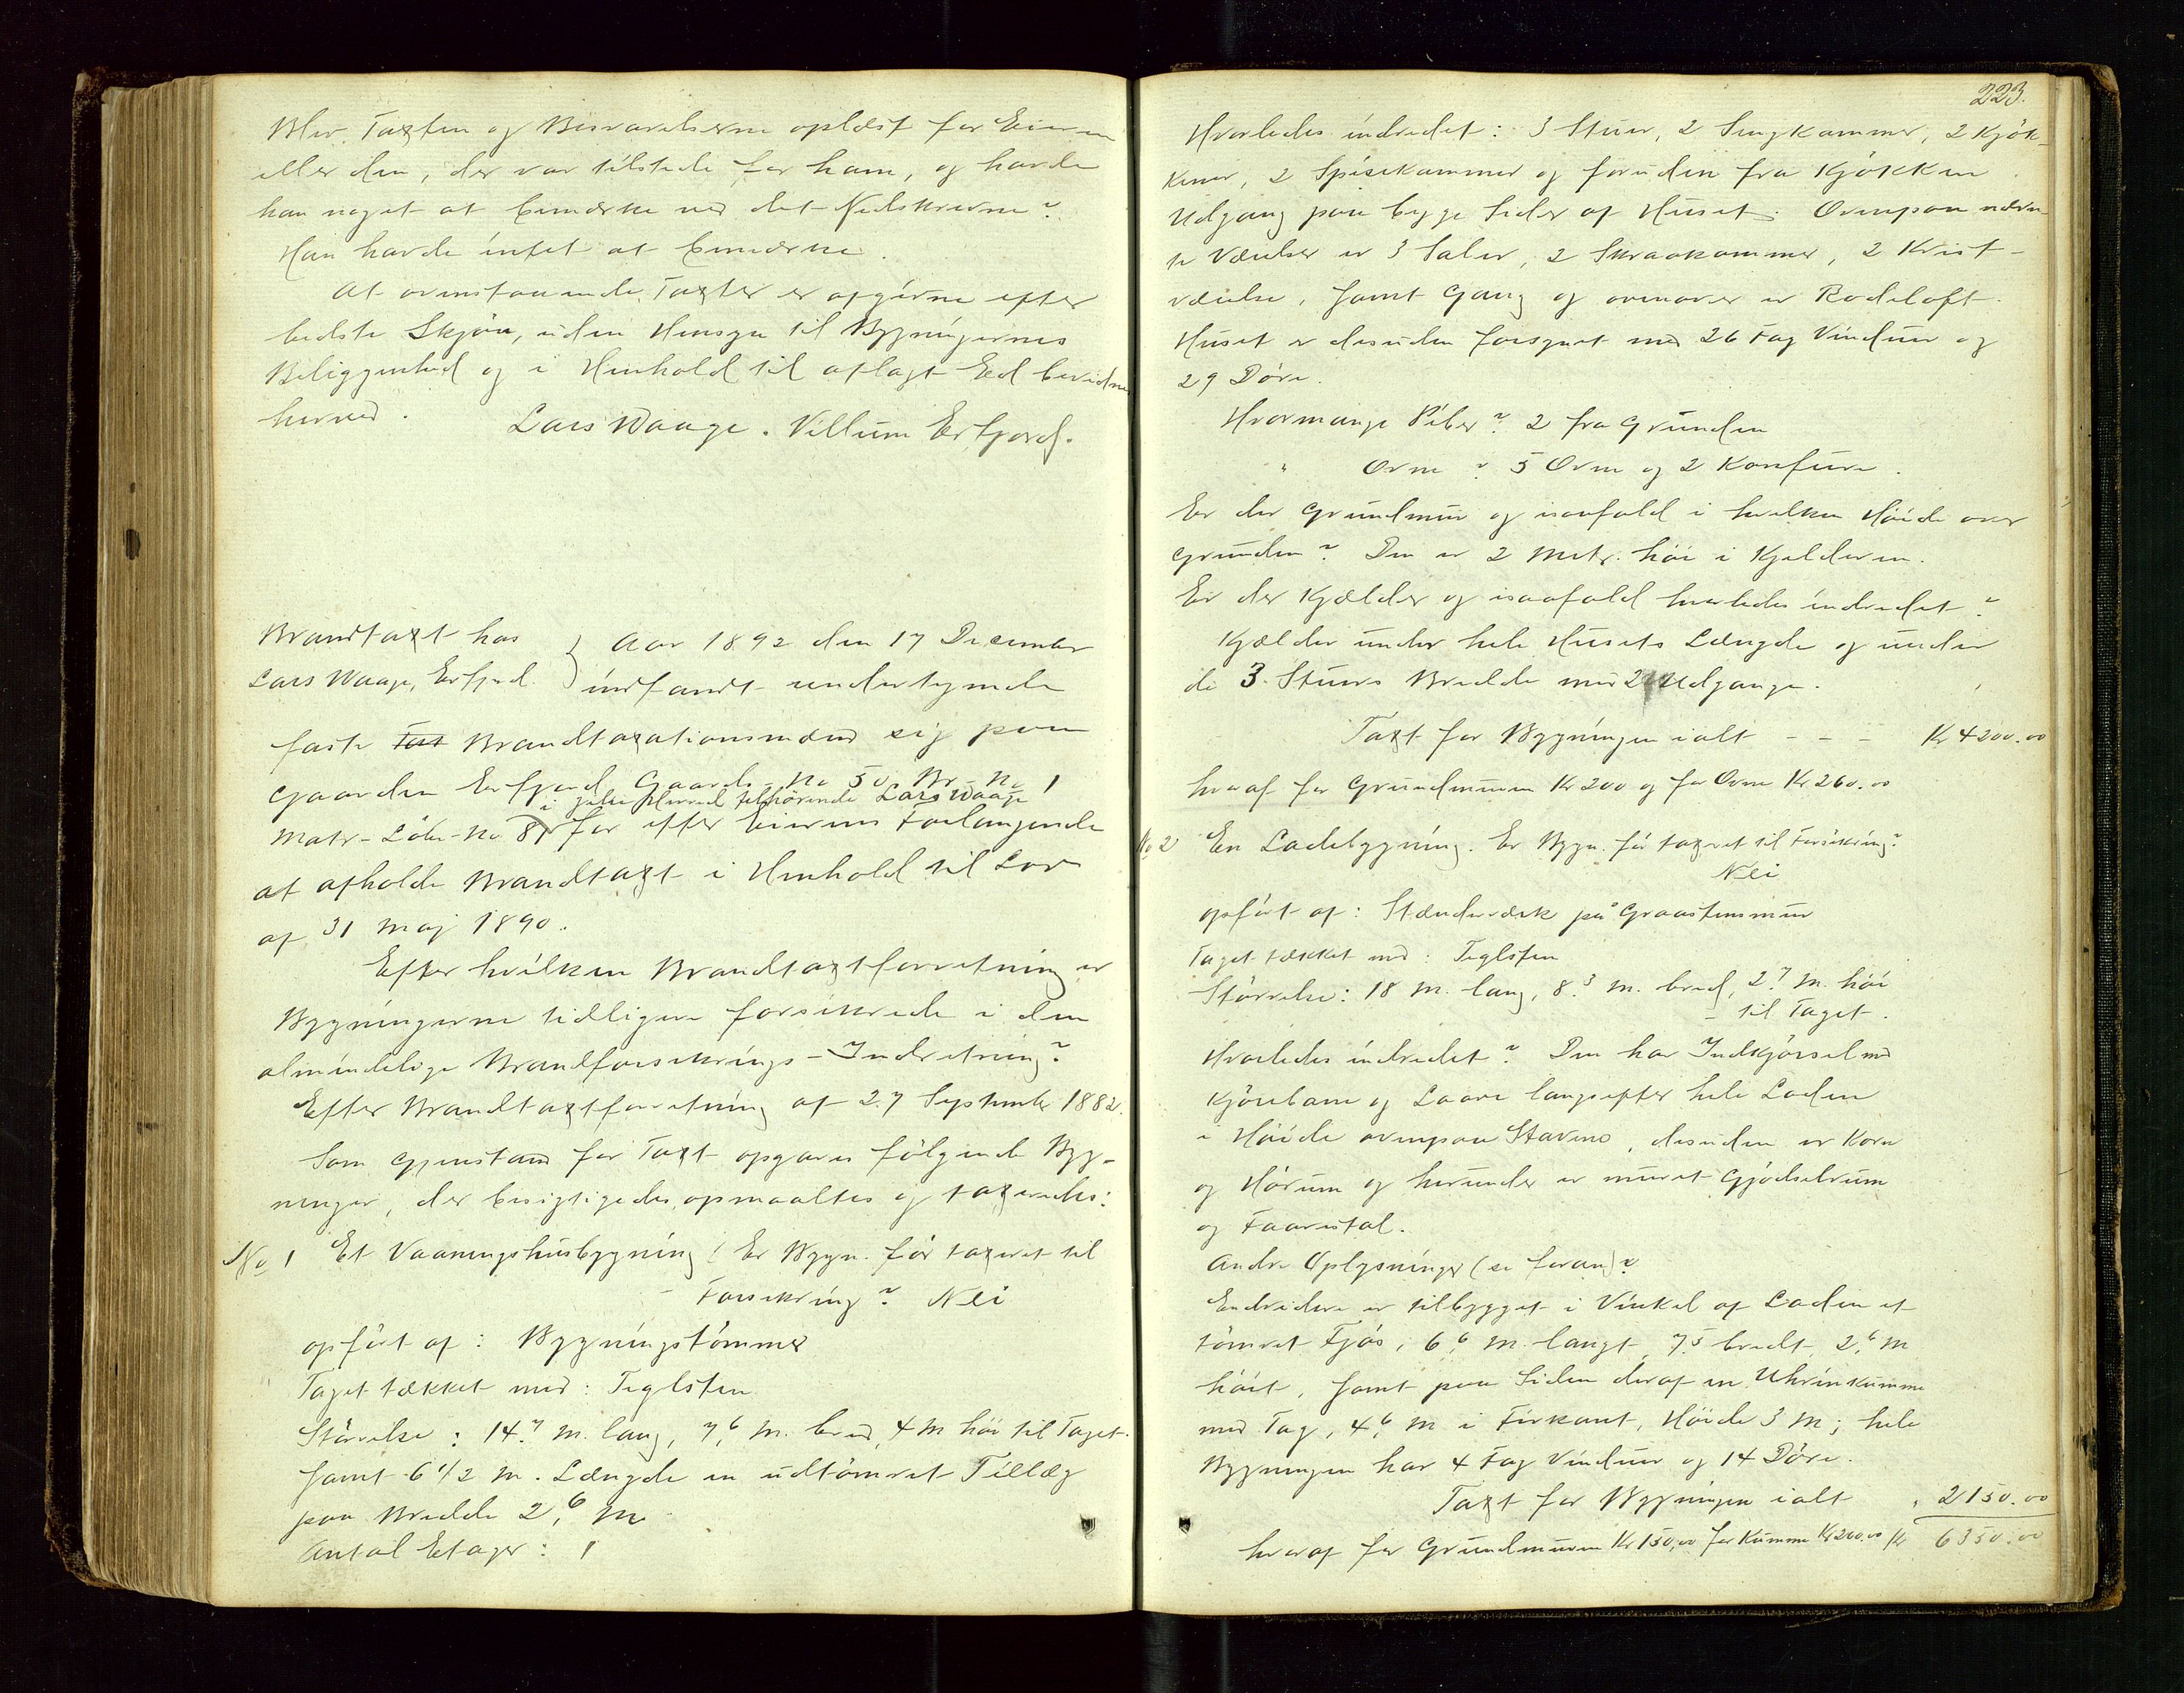 Blev Taxten og Besvarelserne oplæst for Eieren
eller den, der var tilstede for ham, og havde
han noget at bemærke ved det Nedskrevne?
Han havde intet at bemærke.
At ovenstaaende Taxter er afgivne efter
bedste Skjøn, uden Hensyn til Bygningernes
Beliggenhed og i Henhold til aflagt Ed bevidnes
herved.
Lars Waage. Villum Erfjord.
Brandtaxt hos
Lars Waage, Erfjord.
Aar 1892 den 17 December
indfandt undertegnede
faste Brandtaxationsmænd sig paa
Gaarden Erfjord Gaards-No 50, Br-No 1
i Jelse Herred tilhørende Lars Waage
Matr-Løbe-No 81 for efter Eierens Forlangende
at afholde Brandtaxt i Henhold til Lov
af 31 Maj 1890.
Efter hvilken Brandtaxtforretning er
Bygningerne tidligere forsikrede i den
almindelige Brandforsikrings-Indretning?
Efter Brandtaxtforretning af 27 September 1882.
Som Gjenstand for Taxt opgaves følgende Byg-
ninger, der besigtigedes, opmaaltes og taxeredes:
No 1 Et Vaaningshusbygning! Er Bygn. før taxeret til
Forsikring? Nei
opført af: Bygningstømmer
Taget tækket med: Teglsten
Størrelse: 14,7 m. lang, 7,6 m. bred, 4 m høi til Taget.
samt 6 1/2 m. Længde en udtømret Tillæg
paa Bredde 2,6 m
Antal Etager: 1
223.
Hvorledes indredet: 3 Stuer, 2 Sengkammer, 2 Kjøk-
kener, 2 Spisekammer og foruden fra Kjøkken
Udgang paa begge Sider af Huset. Ovenpaa nævn
te Værelser er 3 Saler, 2 Skraakammer, 2 Kvist-
værelse, samt Gang og ovenover er Rodeloft.
Huset er desuden forsynet med 26 Fag Vinduer og
29 Døre.
Hvormange Piber? 2 fra Grunden
" Ovne? 5 Ovne og 2 Komfure.
Er der Grundmur og isaafald i hvilken Høide over
Grunden? Den er 2 Metr. høi i Kjelderen.
Er der Kjælder og isaafald hvorledes indredet?
Kjælder under hele Husets Længde og under
de 3. Stuers Bredde med 2 Udgange.
Taxt for Bygningen ialt - - - Kr 4200.00
hvoraf for Grundmuren Kr 200 og for Ovne Kr 260.00
No 2 En Ladebygning. Er Bygn. før taxeret til Forsikring?
Nei
opført af: Stænderværk på Graastensmur
Taget tækket med: Teglsten
Størrelse: 18 m. lang, 8,3 m. bred, 2,7 m. høi
til Taget.
Hvorledes indredet? Den har Indkjørsel med
Kjørebane og Laave langsefter hele Laden
i Høide ovenpaa Stavene, desuden er Korn
og Hørum og herunder er muret Gjødselrum
og Faarestal.
Andre Oplysninger (se foran)?
Endvidere er tilbygget i Vinkel af Laden et
tømret Fjøs, 6,6 m. langt, 7,5 bredt, 2,6 m
høit, samt paa Siden deraf en Uhrinkumme
med Tag, 4,6 m i Firkant, Høide 3 m; hele
Bygningen har 4 Fag Vinduer og 14 Døre.
Taxt for Bygningen ialt " 2150.00
hvoraf for Grundmuren Kr 150,00 for Kumme Kr 200.00 Kr 6350.00